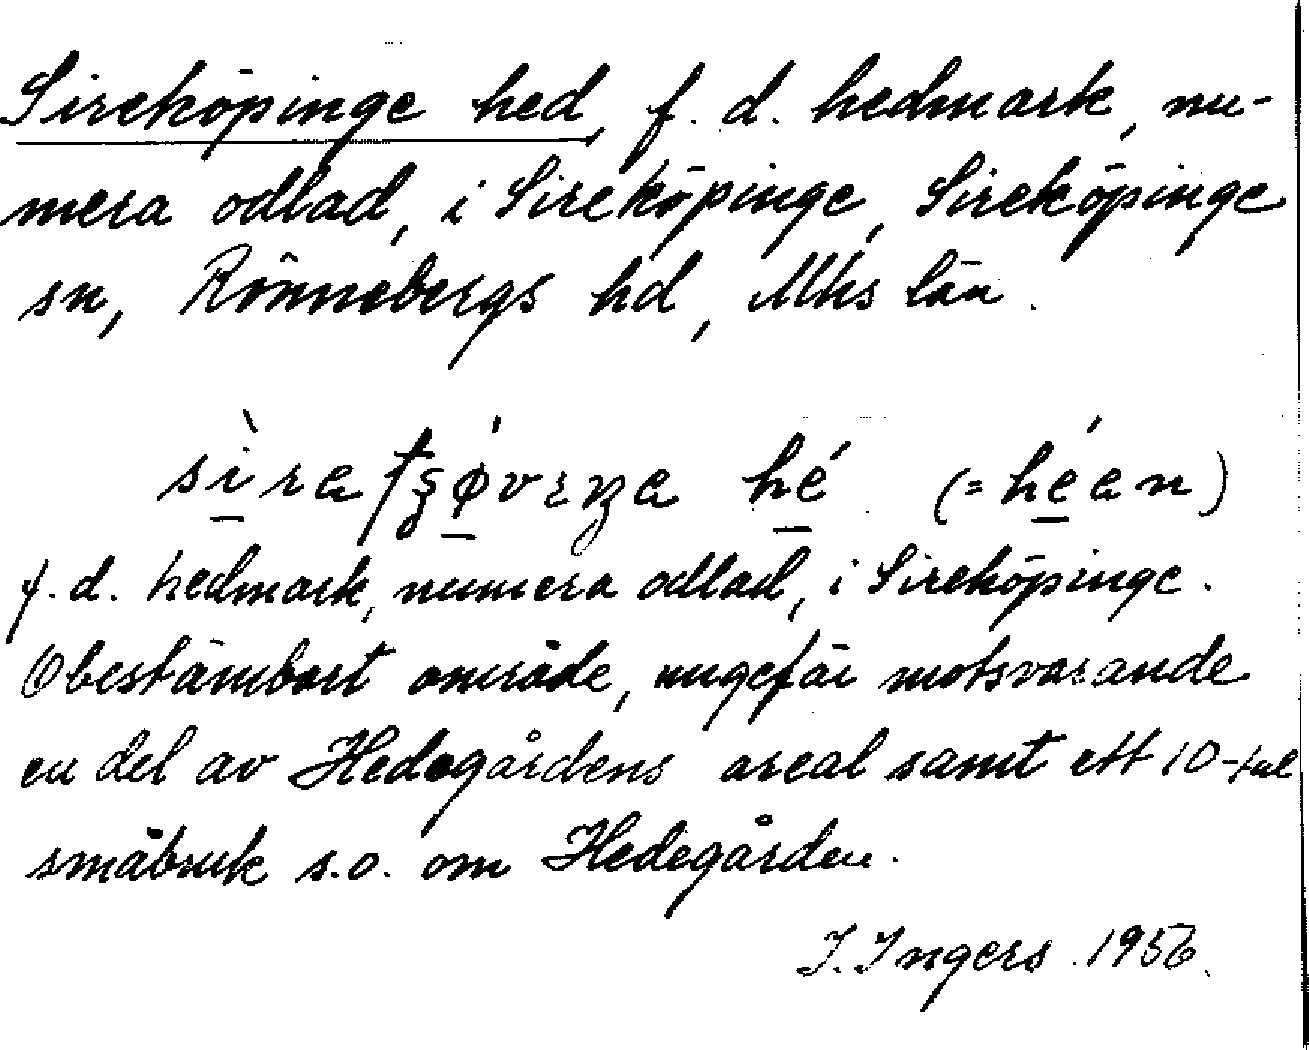 Sireköpinge hed, f. d. hedmark, nu-
mera odlad, i Sireköpinge, Sireköpinge
sn, Rönnebergs hd, Mhs län.
(= héan)
f. d. hedmark, numera odlad, i Sireköpinge.
Obestämbart område, ungefär motsvarande
en del av Hedegårdens areal samt ett 10-tal
småbruk s.o. om Hedegården.
I. Ingers 1956.